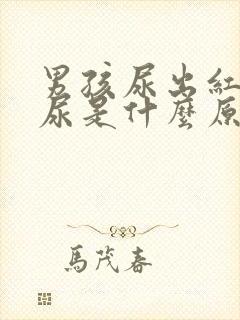 男孩尿出紅
尿是什麼原
馬茂春